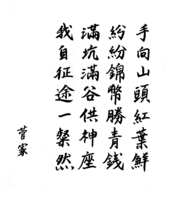 手向山頭紅葉鮮
紛紛錦幣勝青錢
滿坑滿谷供神座
我自征途一粲然
菅家